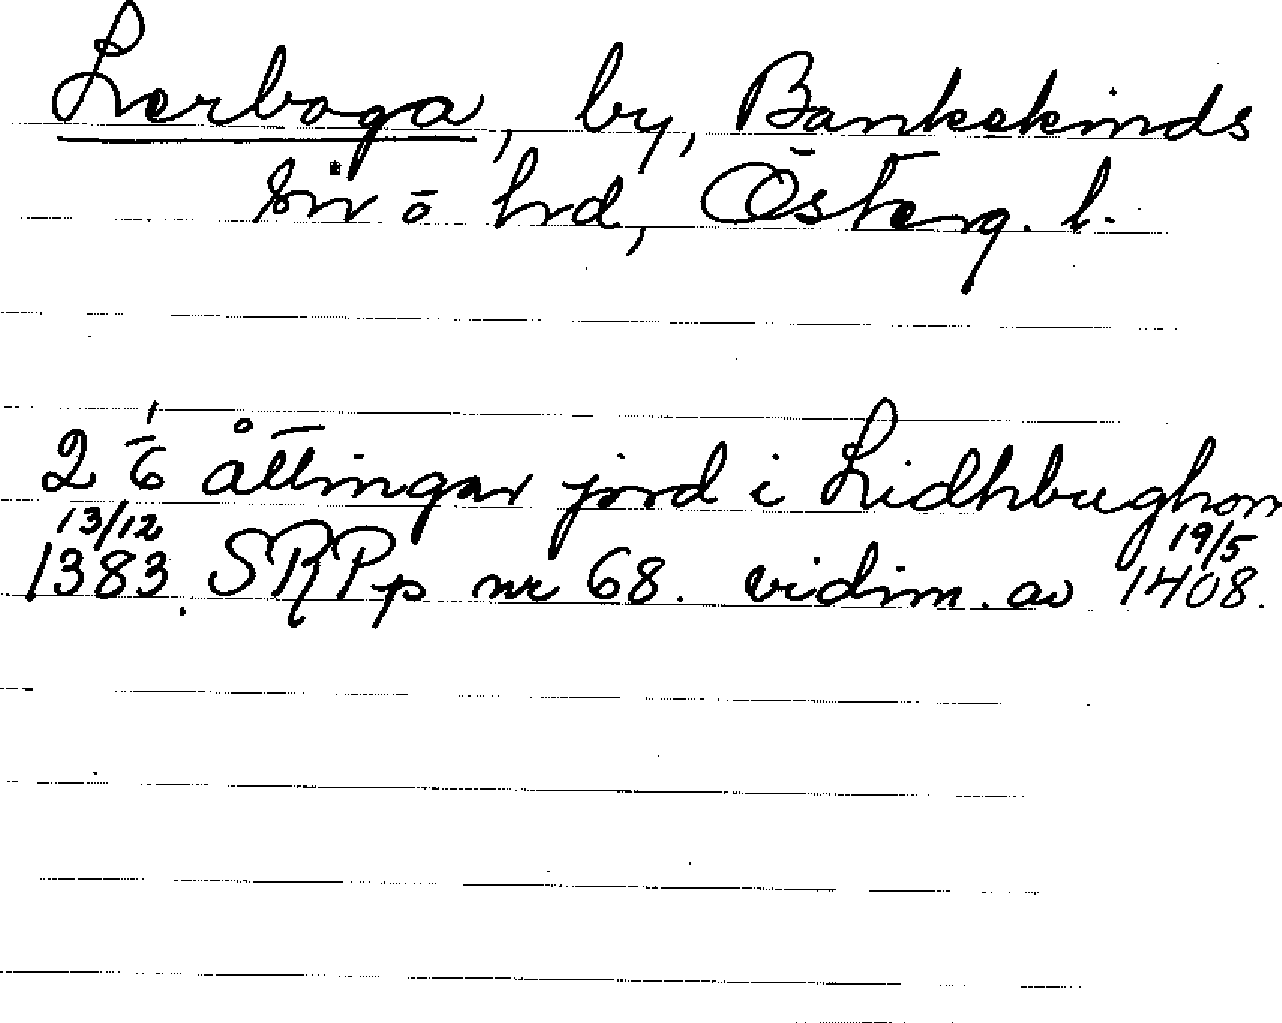 Lerboga, by, Bankekinds
sn ö hd, Österg. l.
2 1/6 åttingar jord i Lidhbughom
13/12 19/5
1383. SRPp nr 68. vidim. av 1408.